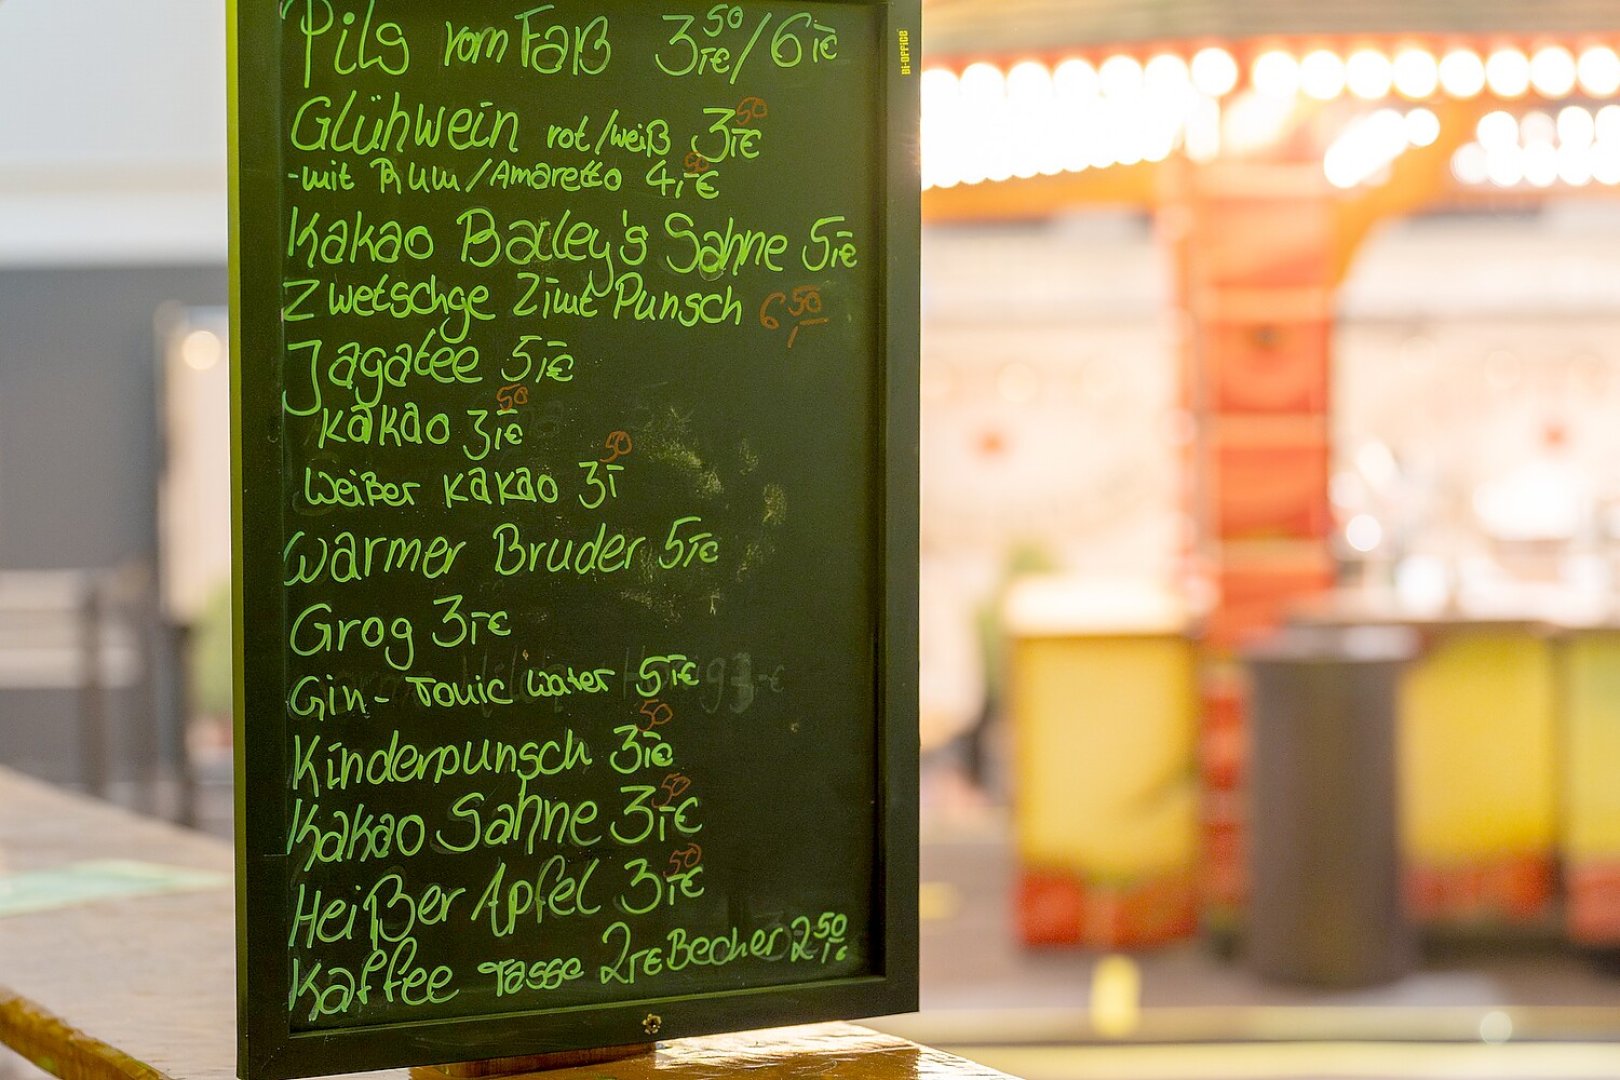 Pils vom Faß 3,50€/6,-€
BI-OFFICE
Glühwein rot/weiß 3,50€
-mit Rum/Amaretto 4,50€
Kakao Bailey's Sahne 5,-€
Zwetschge Zimt Punsch 6,50
Jagatee 5,-€
Kakao 3,50€
Weißer Kakao 3,50
Warmer Bruder 5,-€
Grog 3,-€
Gin-Tonic Water 5,-€
Kinderpunsch 3,50€
Kakao Sahne 3,50€
Heißer Apfel 3,50€
Kaffee Tasse 2,-€ Becher 2,50€